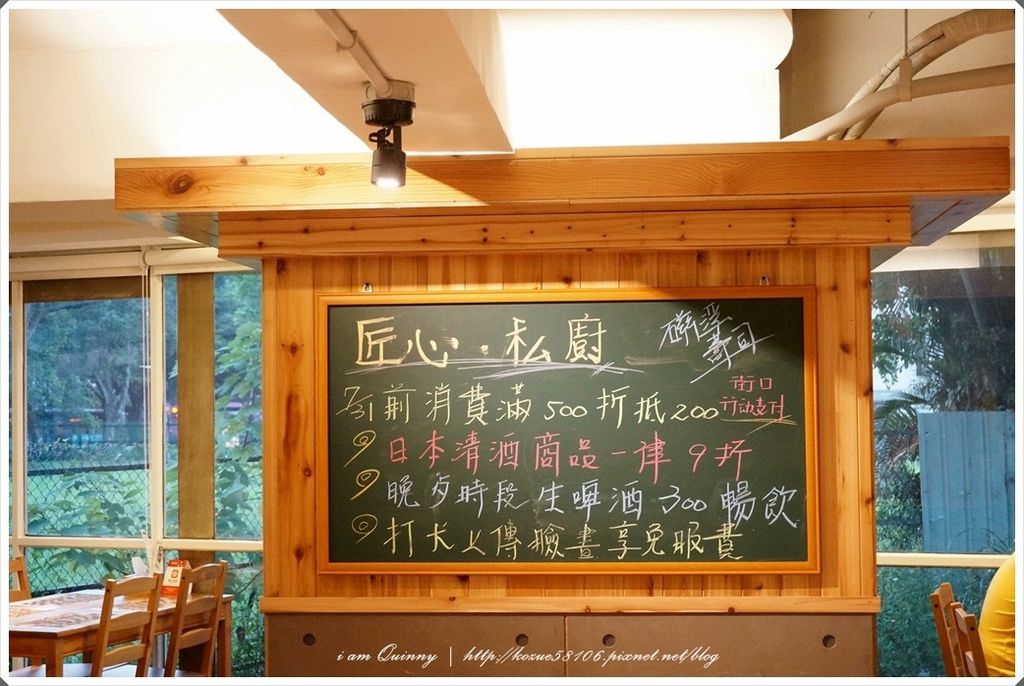 匠心.私廚
磯浮壽司
7/31前消費滿500折抵200
街口
行动支付
日本清酒商品一律9折
晚夕時段生啤酒300暢飲
打卡上傳臉書享免服費
i am Quinny | http://kozue58106.pixnet.net/blog